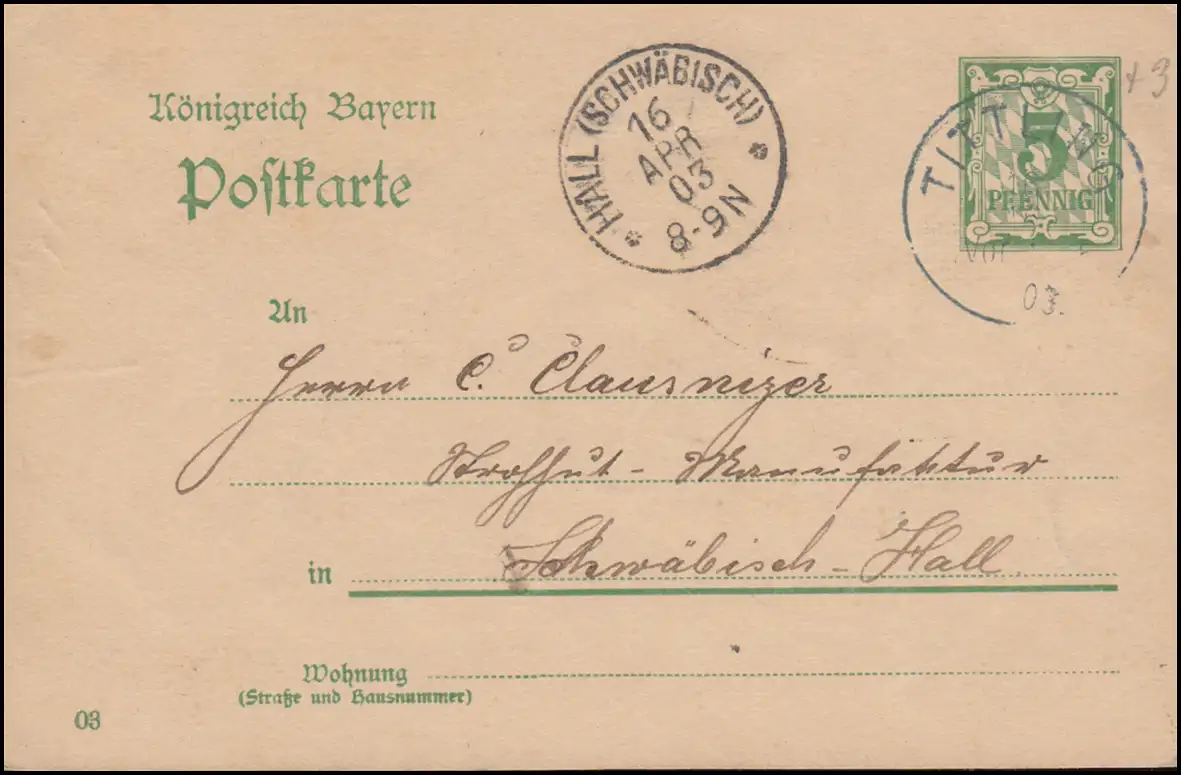 Königreich Bayern
Postkarte
HALL (SCHWÄBISCH)
16
APR
03
8-9N
+3
5
PFENNIG
TITTLING
03.
An
Herrn C. Clausnizer
Strohhut-Manufaktur
in Schwäbisch-Hall
Wohnung
(Straße und Hausnummer)
03